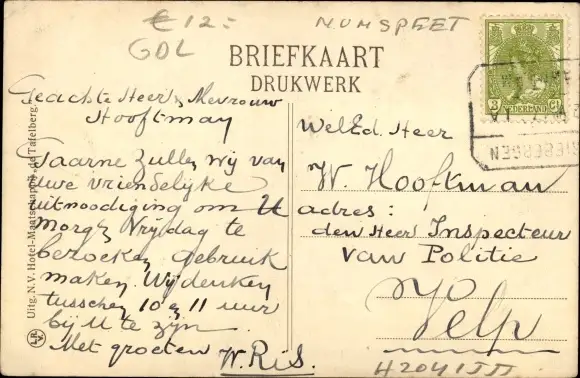 € 12.-
NUNSPEET
GDL
BRIEFKAART
DRUKWERK
3 Ct
NEDERLAND
Geachte Heer & Mevrouw
Hooftman
Gaarne zullen wij van
uwe vriendelijke
uitnoodiging om U
morgen Vrijdag te
bezoeken gebruik
maken. Wij denken
tusschen 10 en 11 uur
bij U te zijn.
Met groeten
W. Ris.
WelEd. Heer
W. Hooftman
adres:
den Heer Inspecteur
van Politie
Velp
Uitg. N.V. Hotel-Maatschappij „de Tafelberg"